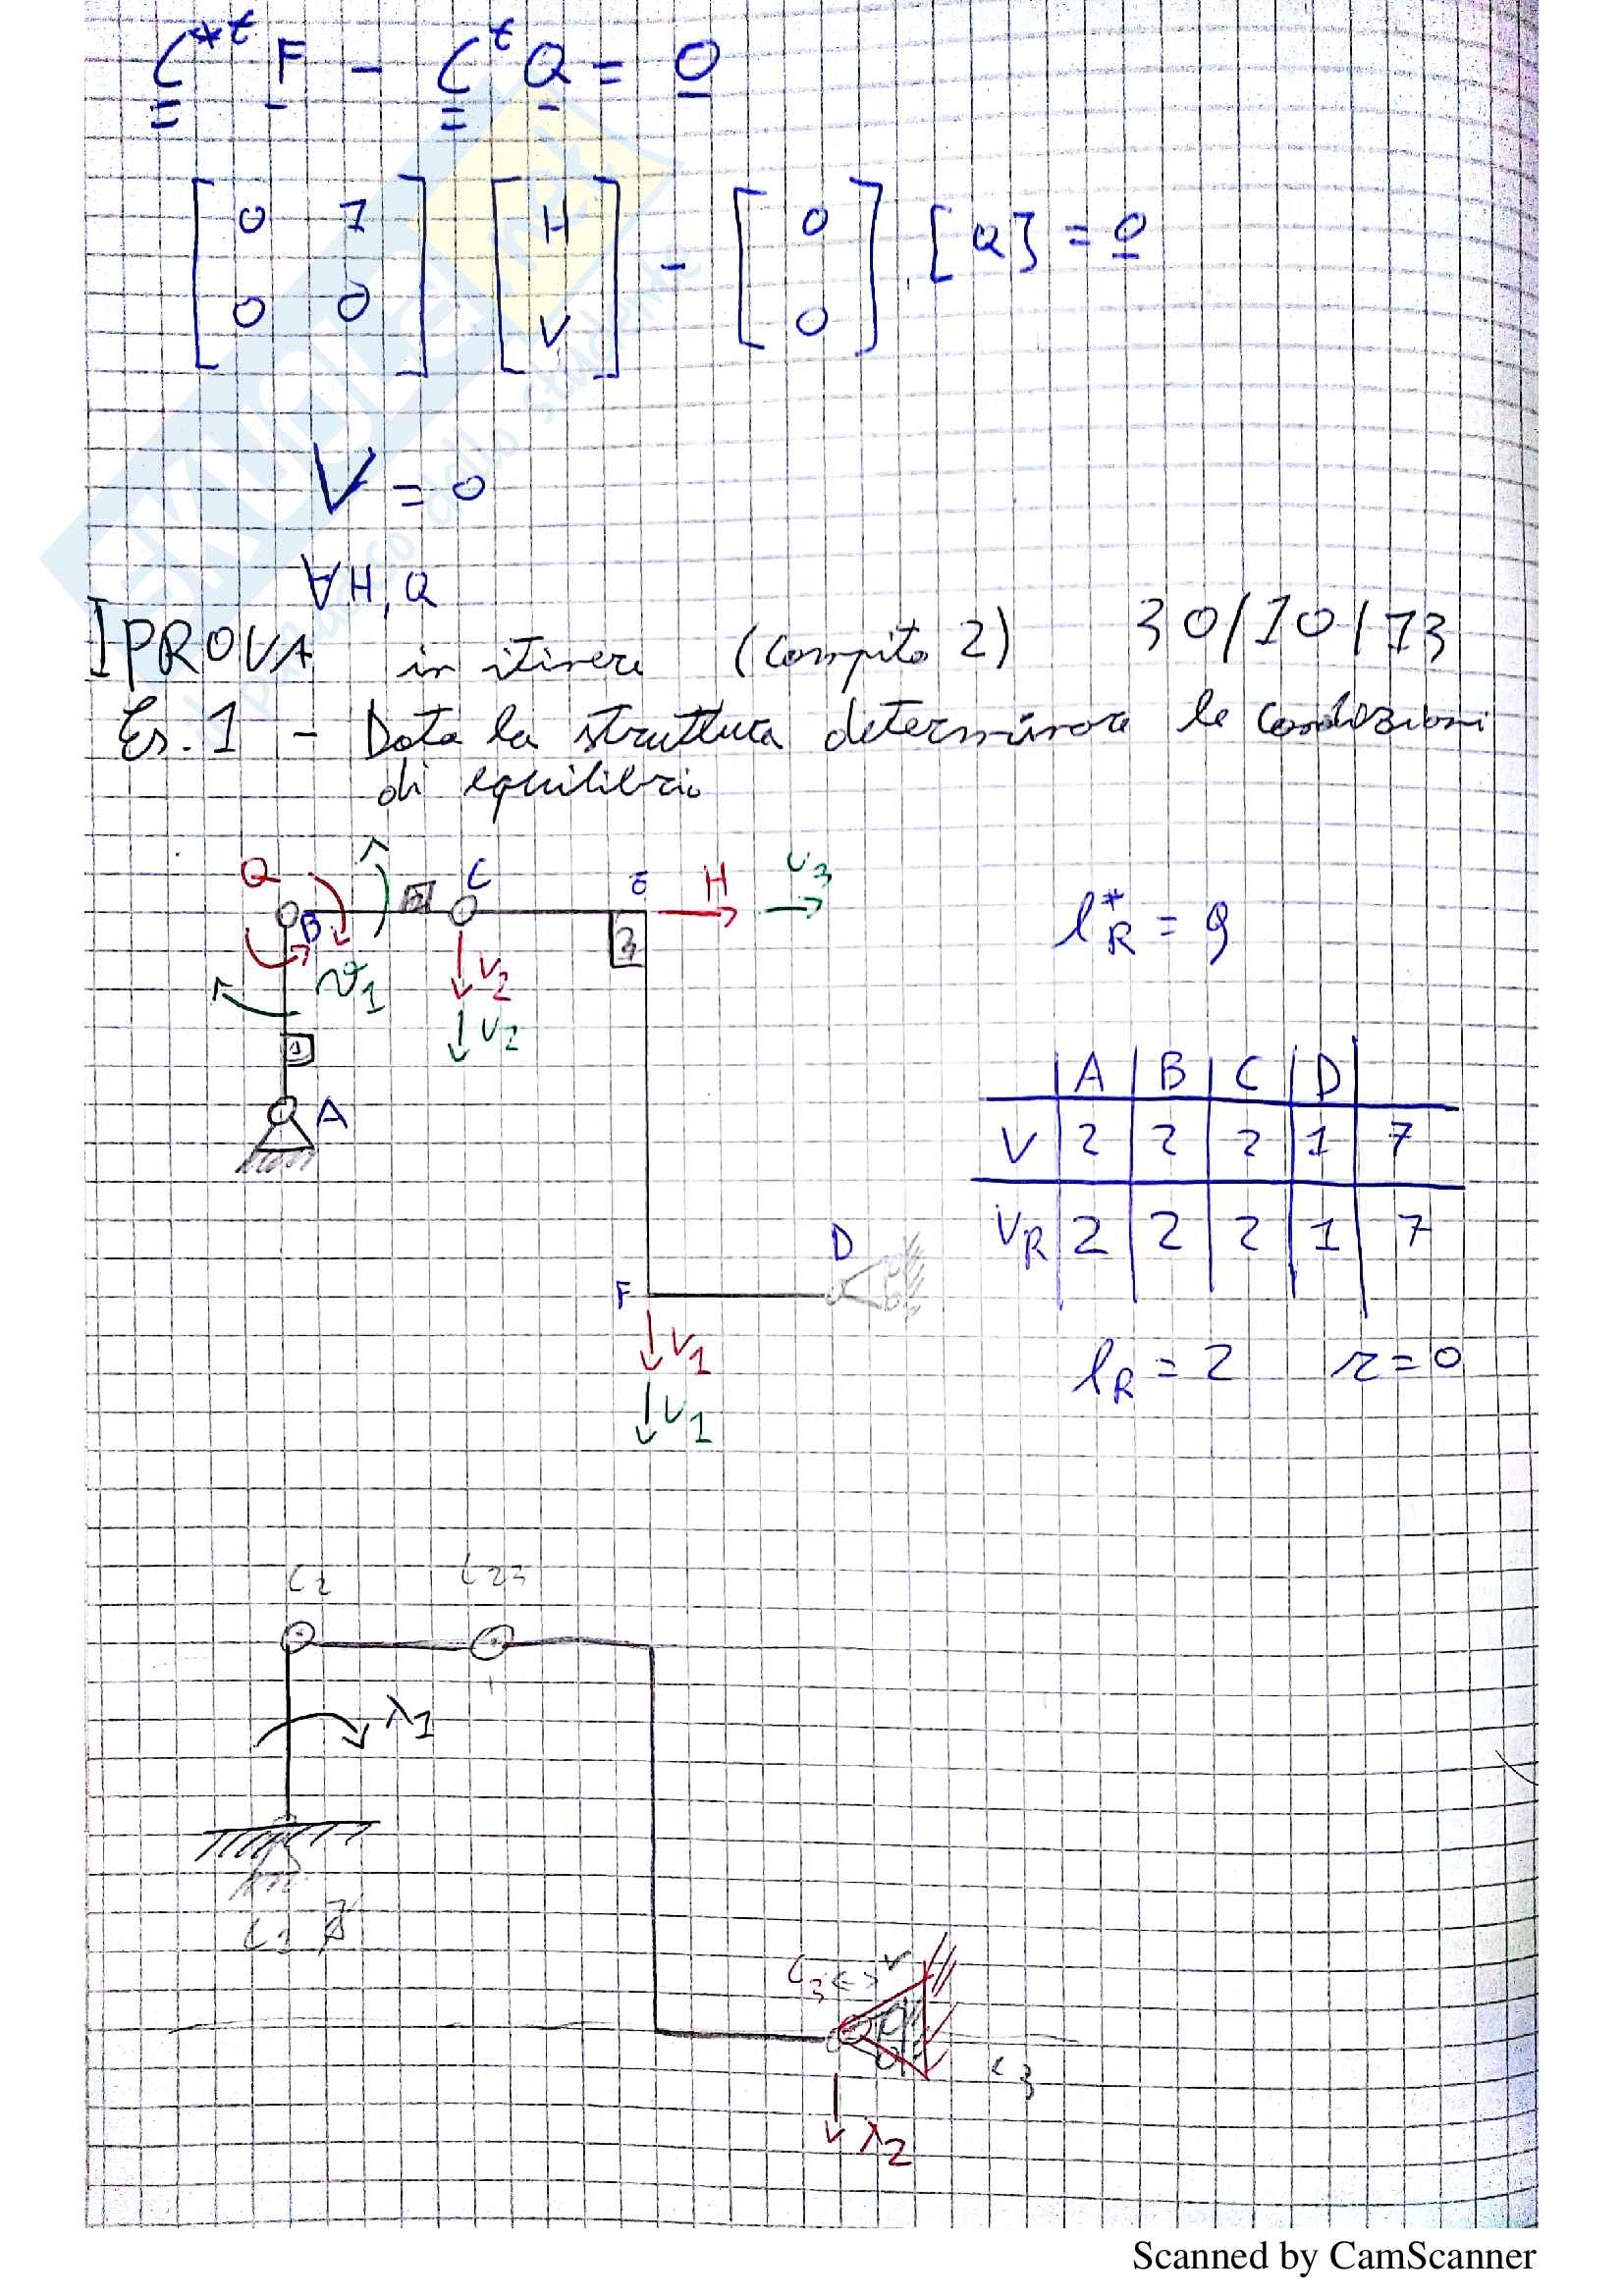 C*ᵗ F - Cᵗ Q = 0
[0 1 0 0] [H V] - [0 0] [Q] = 0
V = 0
∀ H, Q
I PROVA in itinere (Compito 2) 30/10/13
Es. 1 - Data la struttura determinare le condizioni
di equilibrio
Q C E H U3
B 2 3
ϑ1 V2
V2
1
A
l*R = 9
A B C D
V 2 2 2 1 7
VR 2 2 2 1 7
D
F
V1
V1
lR = 2 r = 0
C2 C23
λ1
C1
C3
C3
λ2
Scanned by CamScanner